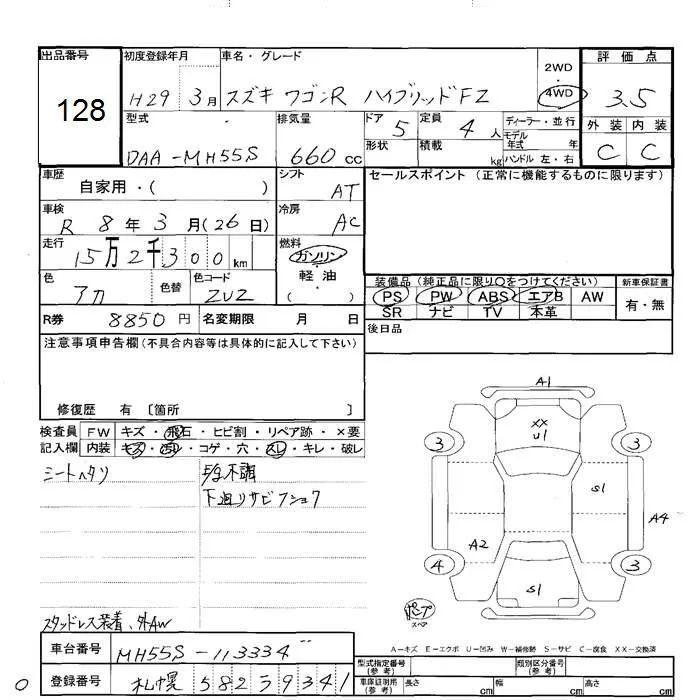 出品番号 初度登録年月 車名・グレード 2WD ・ 4WD 評価点
128 H29 3月 スズキ ワゴンR ハイブリッドFZ 3.5
型式 排気量 ドア 定員 ディーラー・並行 外装 内装
DAA-MH55S 660cc 5 4人 モデル年式 年 C C
形状 積載 kg ハンドル 左・右
車歴 シフト セールスポイント(正常に機能するものに限ります)
自家用・( ) AT
車検 冷房
R 8年 3月(26日) AC
走行 燃料
15万2千300km ガソリン
・
色 色替 色コード 軽油
アカ ZUZ ( )
装備品(純正品に限り○をつけてください) 新車保証書
PS PW ABS エアB AW 有・無
SR ナビ TV 本革
R券 8850円 名変期限 月 日 後日品
注意事項申告欄(不具合内容等は具体的に記入して下さい)
修復歴 有 〔箇所 〕
検査員 FW キズ・飛石・ヒビ割・リペア跡・×要
記入欄 内装 キズ・汚レ・コゲ・穴・スレ・キレ・破レ
シートヘタリ
下廻りサビフショク
スタッドレス装着、外AW
A1
XX
U1
3 3
S1
A4
A2
4 3
S1
スペア
A-キズ E-エクボ U-凹み W-補修跡 S-サビ C-腐食 XX-交換済
車台番号 MH55S-113334
型式指定番号(参考) 類別区分番号(参考)
登録番号 札幌 582 5 9341
車庫証明用(参考) 長さ cm 幅 cm 高さ cm
0